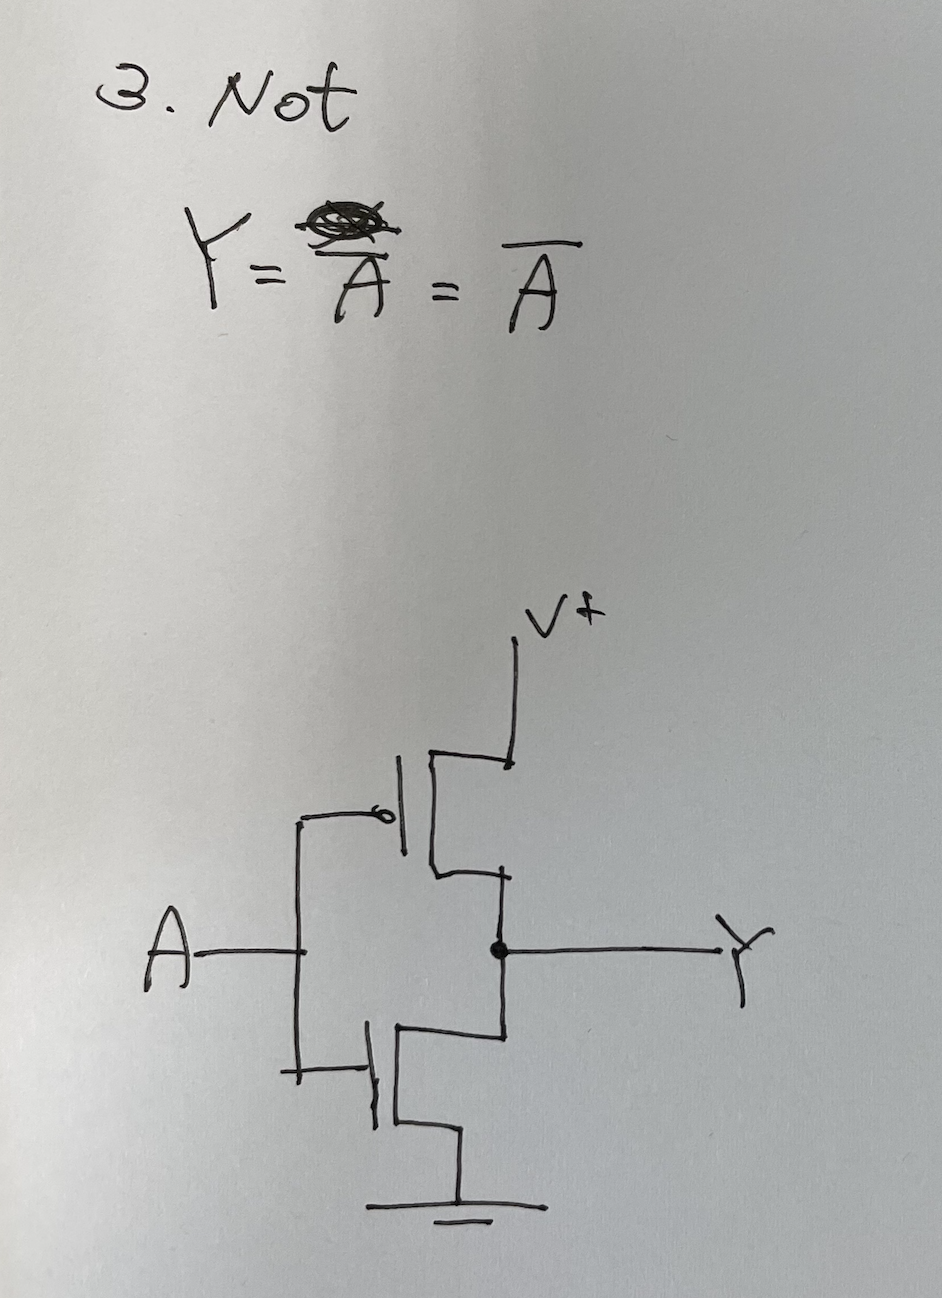 3. Not
Y = A̅ = A̅
V+
A
Y